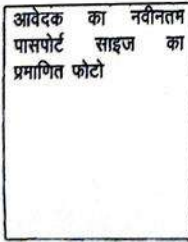 आवेदक का नवीनतम
पासपोर्ट साइज का
प्रमाणित फोटो